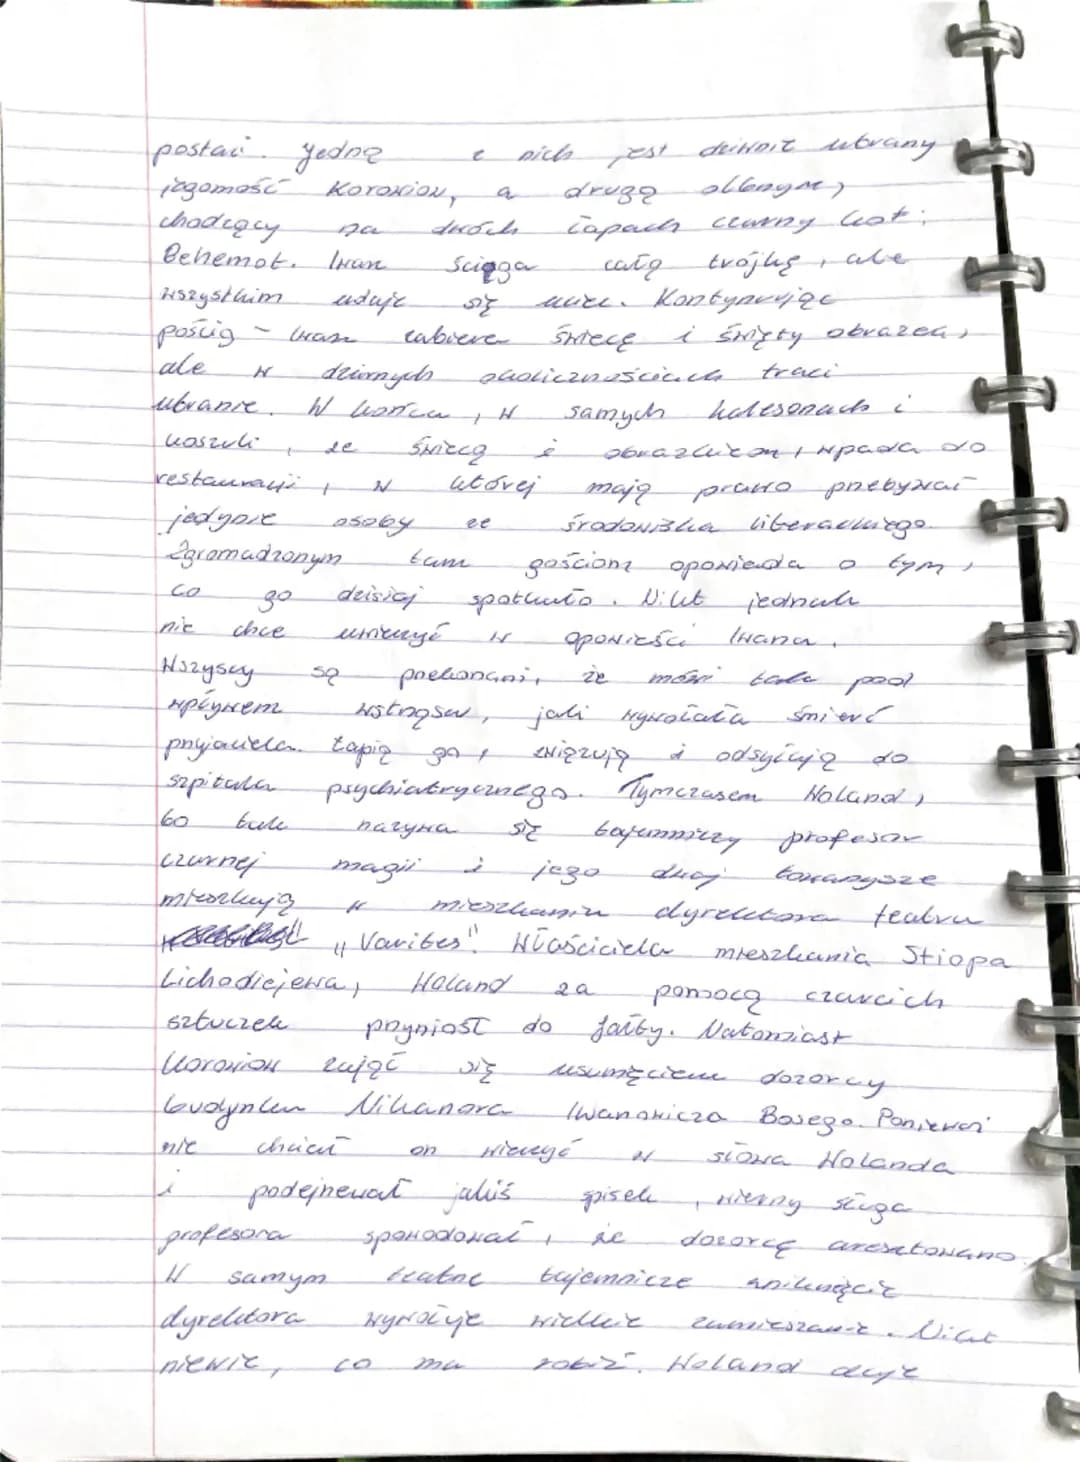 postaci. Jedną z nich jest dziwnie ubrany
jegomość Korowiow, a drugą olbrzym,
chodzący na dwóch łapach czarny kot:
Behemot. Iwan ściga całą trójkę, ale
wszystkim udaje się uciec. Kontynuując
pościg - Iwan zabiera świecę i święty obrazek,
ale w dziwnych okolicznościach traci
ubranie. W końcu, w samych kalesonach i
koszuli, ze świecą i obrazkiem, wpada do
restauracji, w której mają prawo przebywać
jedynie osoby ze środowiska literackiego.
Zgromadzonym tam gościom opowiada o tym,
co go dzisiaj spotkało. Nikt jednak
nie chce uwierzyć w opowieści Iwana.
Wszyscy są przekonani, że mówi tak pod
wpływem wstrząsu, jaki wywołała śmierć
przyjaciela. Łapią go, związują i odsyłają do
szpitala psychiatrycznego. Tymczasem Woland,
bo tak nazywa się tajemniczy profesor
czarnej magii i jego dwaj towarzysze
mieszkają w mieszkaniu dyrektora teatru
„Varites". Właściciela mieszkania Stiopa
Lichodiejewa, Woland za pomocą czarcich
sztuczek przyniósł do Jałty. Natomiast
Korowiow zajął się usunięciem dozorcy
budynku Nikanora Iwanowicza Bosego. Ponieważ
nie chciał on wierzyć w słowa Wolanda
i podejrzewał jakiś spisek, wierny sługa
profesora spowodował, że dozorcę aresztowano.
W samym teatrze tajemnicze zniknięcie
dyrektora wywołuje wielkie zamieszanie. Nikt
niewie, co ma robić. Woland daje